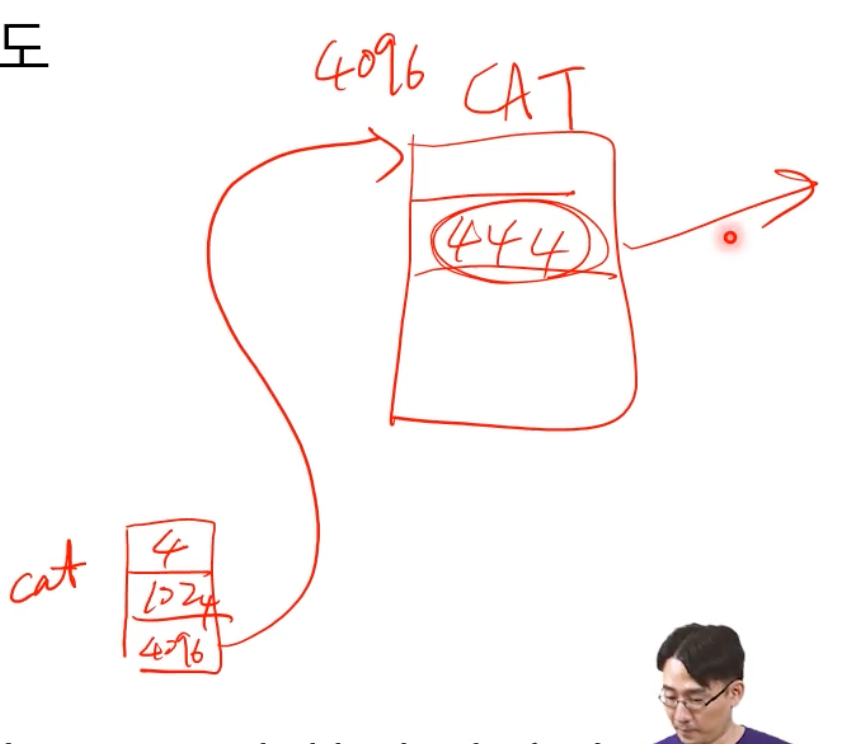 도
4096 CAT
444
cat
4
1024
4096